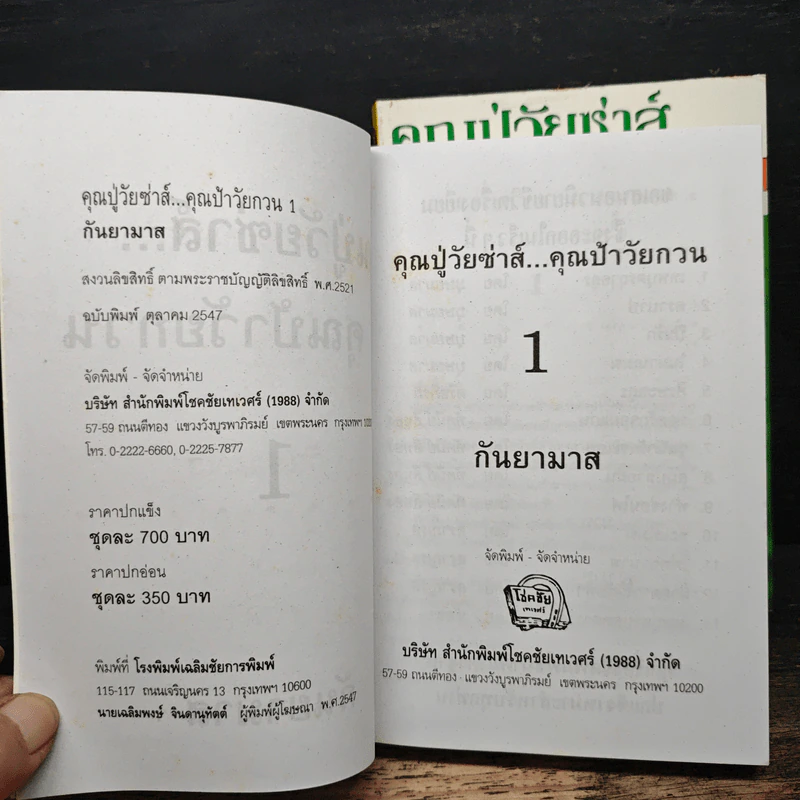 คุณปู่วัยซ่าส์
คุณปู่วัยซ่าส์...คุณป้าวัยกวน 1
กันยามาส
สงวนลิขสิทธิ์ ตามพระราชบัญญัติลิขสิทธิ์ พ.ศ.2521
ฉบับพิมพ์ ตุลาคม 2547
จัดพิมพ์ - จัดจำหน่าย
บริษัท สำนักพิมพ์โชคชัยเทเวศร์ (1988) จำกัด
57-59 ถนนตีทอง แขวงวังบูรพาภิรมย์ เขตพระนคร กรุงเทพฯ 10200
โทร. 0-2222-6660, 0-2225-7877
ราคาปกแข็ง
ชุดละ 700 บาท
ราคาปกอ่อน
ชุดละ 350 บาท
พิมพ์ที่ โรงพิมพ์เฉลิมชัยการพิมพ์
115-117 ถนนเจริญนคร 13 กรุงเทพฯ 10600
นายเฉลิมพงษ์ จินดานุทัตต์ ผู้พิมพ์ผู้โฆษณา พ.ศ.2547
คุณปู่วัยซ่าส์...คุณป้าวัยกวน
1
กันยามาส
จัดพิมพ์ - จัดจำหน่าย
โชคชัย
เทเวศร์
บริษัท สำนักพิมพ์โชคชัยเทเวศร์ (1988) จำกัด
57-59 ถนนตีทอง แขวงวังบูรพาภิรมย์ เขตพระนคร กรุงเทพฯ 10200